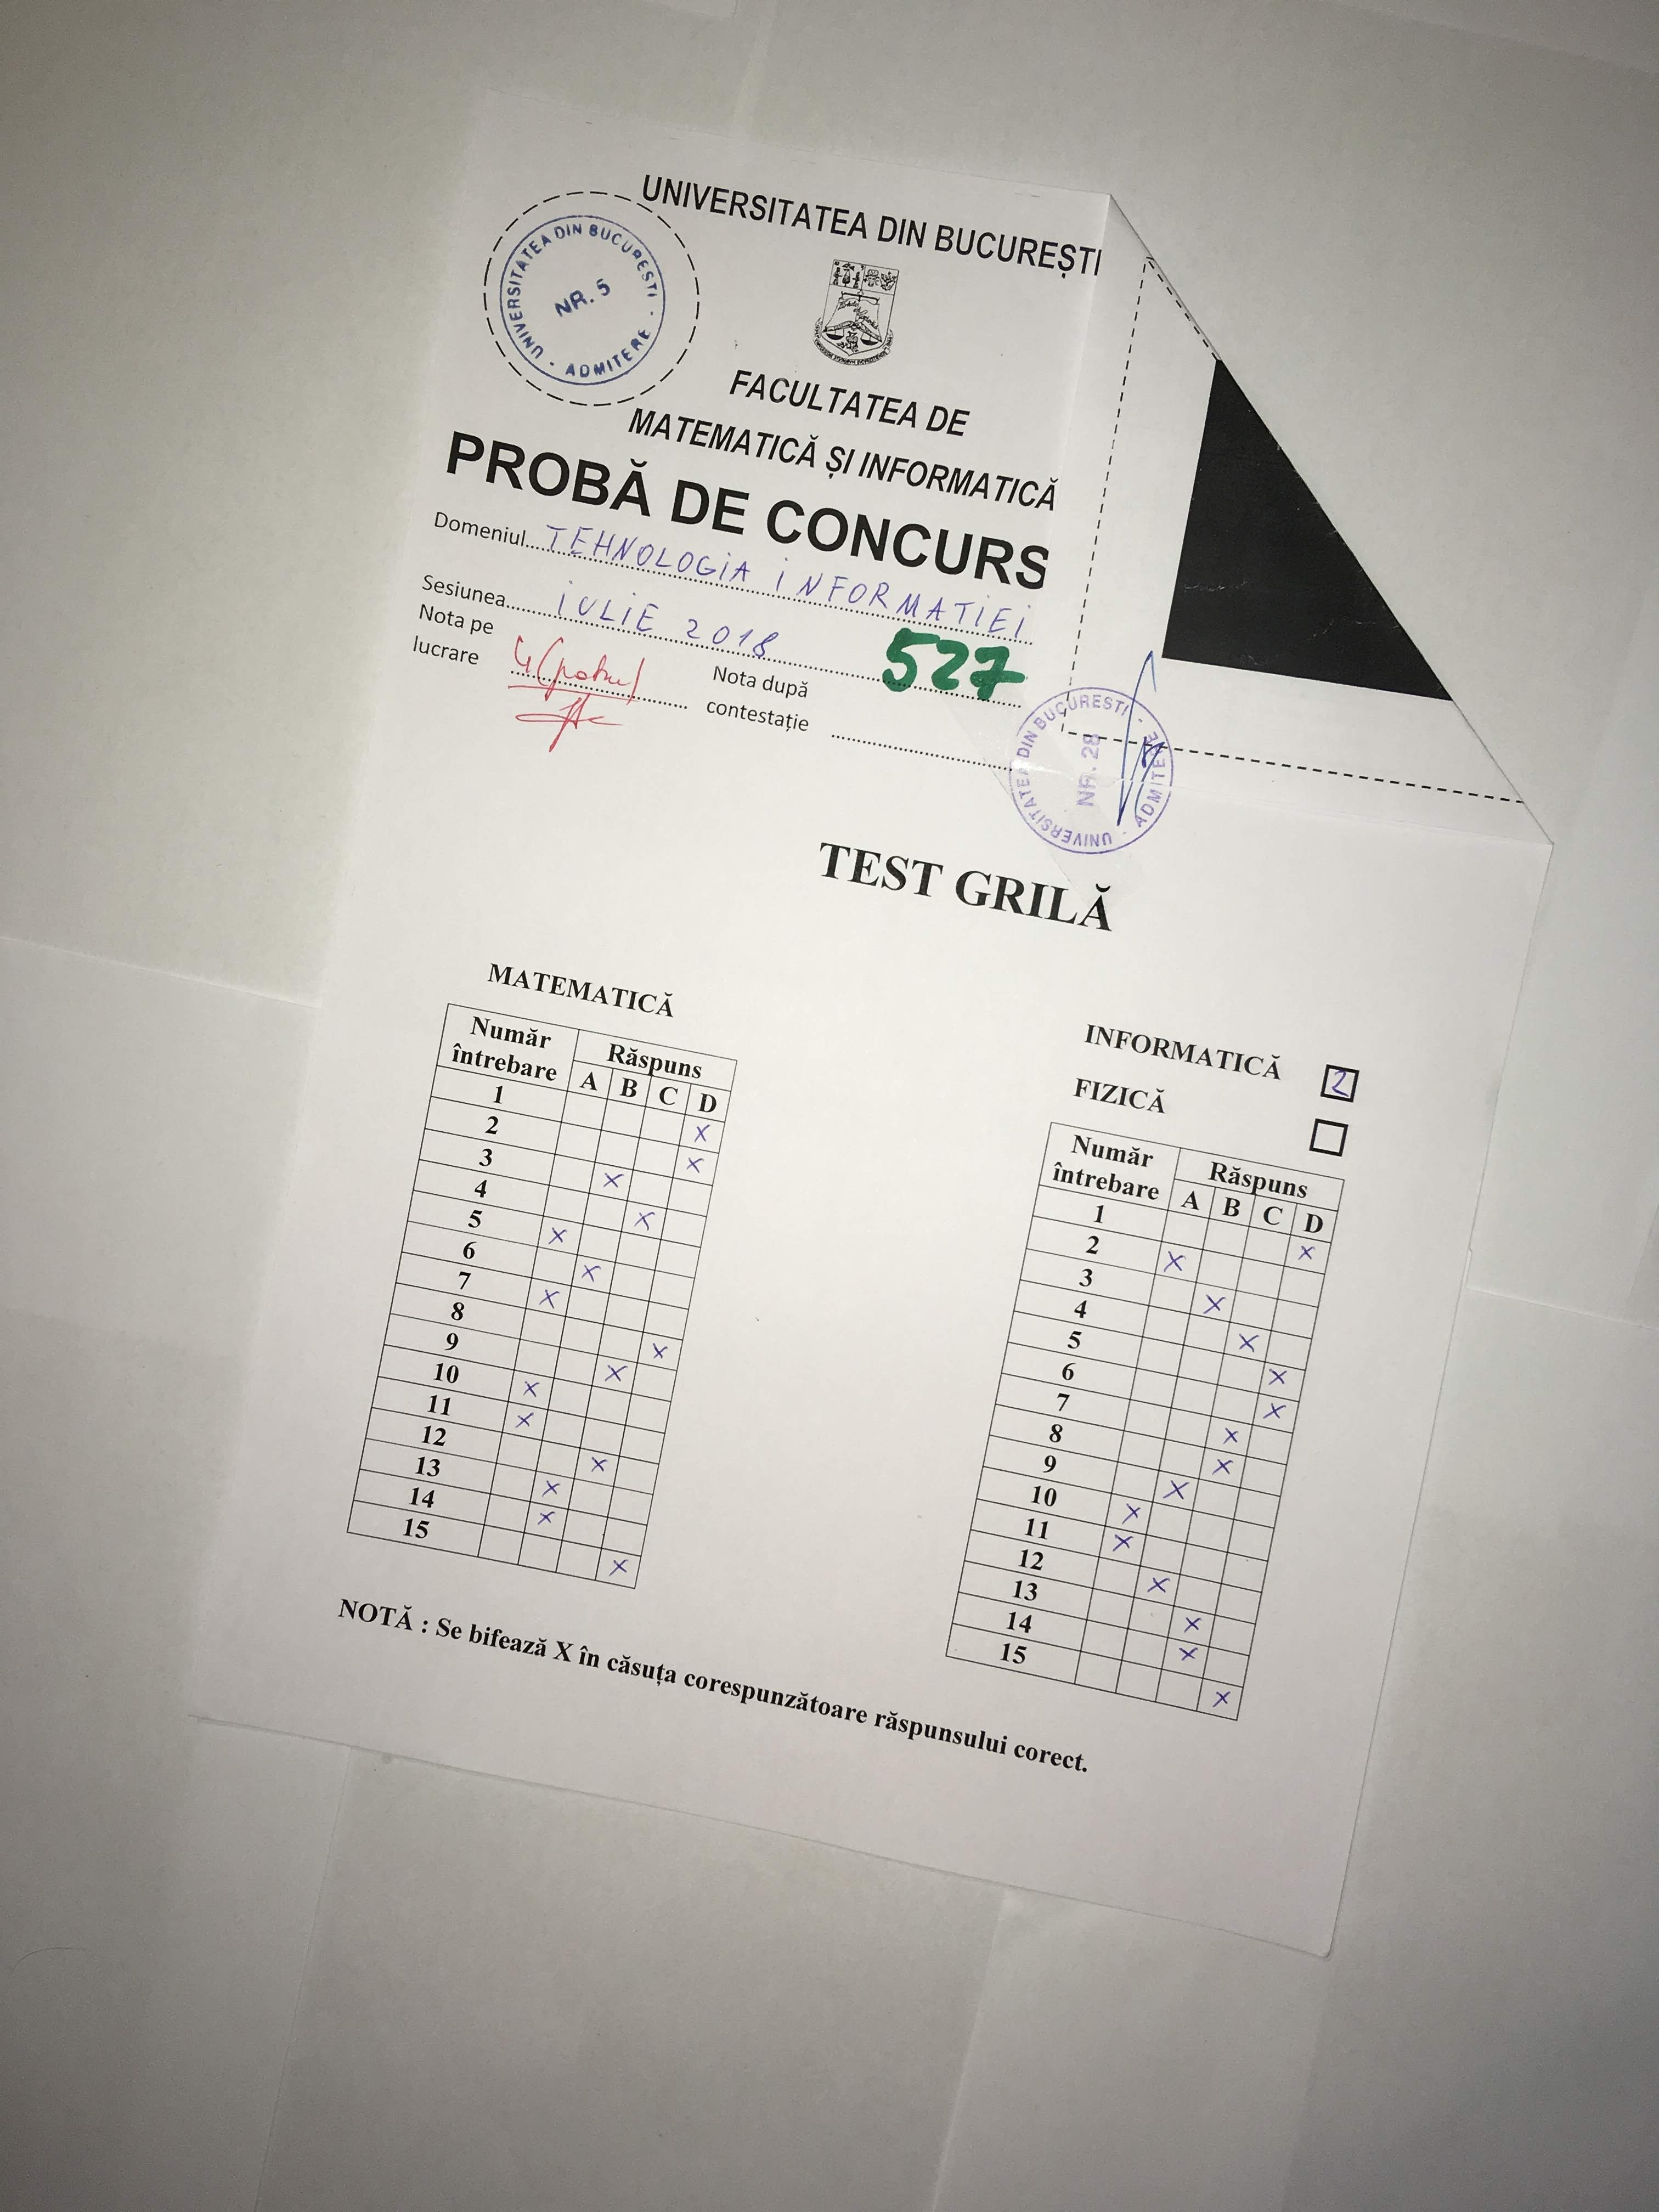 UNIVERSITATEA DIN BUCUREȘTI
UNIVERSITATEA DIN BUCURESTI - ADMITERE -
NR. 5
FACULTATEA DE
MATEMATICĂ ȘI INFORMATICĂ
PROBĂ DE CONCURS
Domeniul TEHNOLOGIA INFORMATIEI
Sesiunea IULIE 2018
527
Nota pe
lucrare 4 (patru)
Nota după
contestație
UNIVERSITATEA DIN BUCURESTI - ADMITERE -
NR. 28
TEST GRILĂ
MATEMATICĂ
Număr
întrebare
Răspuns
A B C D
1 X
2 X
3 X
4 X
5 X
6 X
7 X
8 X
9 X
10 X
11 X
12 X
13 X
14 X
15 X
INFORMATICĂ 2
FIZICĂ
Număr
întrebare
Răspuns
A B C D
1 X
2 X
3 X
4 X
5 X
6 X
7 X
8 X
9 X
10 X
11 X
12 X
13 X
14 X
15 X
NOTĂ : Se bifează X în căsuța corespunzătoare răspunsului corect.